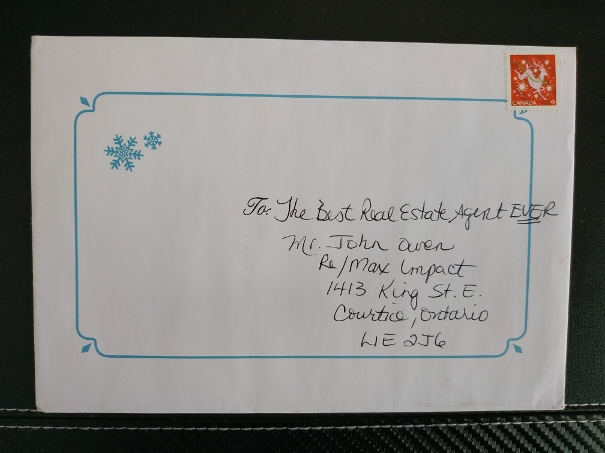 CANADA
To: The Best Real Estate Agent EVER
Mr. John Owen
Re/Max Impact
1413 King St. E.
Courtice, Ontario
L1E 2J6